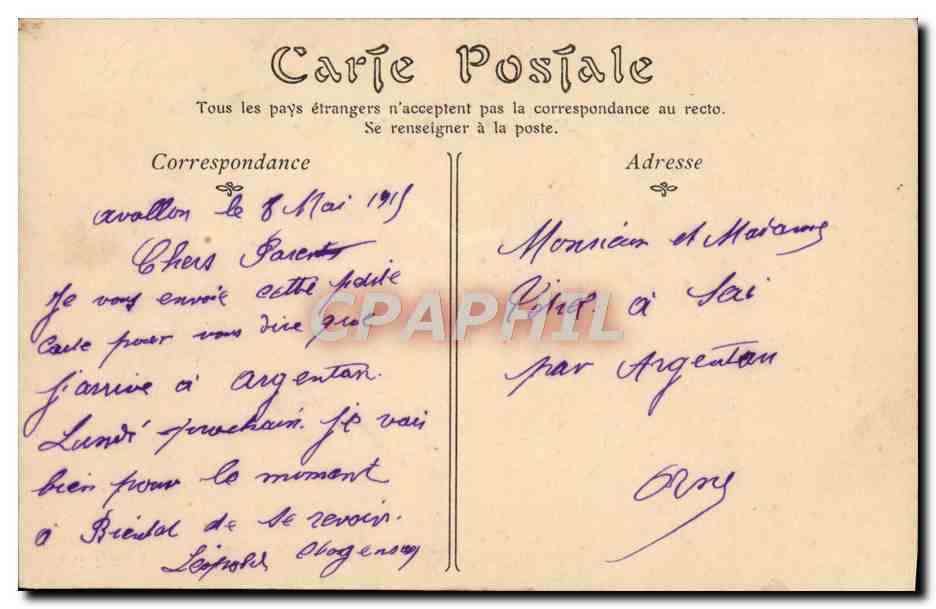 Carte Postale
Tous les pays étrangers n'acceptent pas la correspondance au recto.
Se renseigner à la poste.
Correspondance
Adresse
avallon le 8 Mai 1915
Chers Parents
Je vous envoie cette petite
carte pour vous dire que
j'arrive à argentan.
Lundi prochain. Je vais
bien pour le moment
a Bientot de se revoir.
Léopold
Monsieur et Madame
à Sai
par Argentan
Orne
CPAPHIL